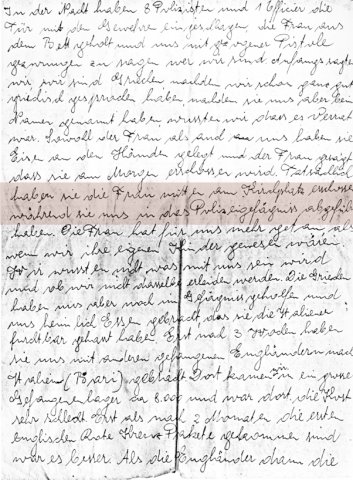 In der Nacht haben 8 Polizisten und 1 Officier die
Tür mit den Gewehre eingeschlagen, die Frau aus
dem Bett geholt und uns mit gezogener Pistole
gezwungen zu sagen wer wir sind. Anfangs sagten
wir wir sind Griechen nachdem wir schon ganz gut
griechisch gesprochen haben nachdem sie uns aber beim
Namen genannt haben wussten wir dass es Verrat
war. Sowohl der Frau als auch uns haben sie
Eisen an den Händen gelegt und der Frau gesagt
dass sie am Morgen erschossen wird. Tatsächlich
haben sie die Frau mitten am Kirchplatz erschossen
während sie uns in das Polizeigefängniss abgeführt
haben. Die Frau hat für uns mehr getan als
wenn wir ihre eigenen Kinder gewesen wären.
Wir wussten nicht was mit uns sein wird
und ob wir nicht dasselbe erleiden werden. Die Griechen
haben uns aber noch im Gefängniss geholfen und
uns heimlich Essen gebracht, das sie die Italiener
furchtbar gehasst haben. Erst nach 3 Wochen haben
sie uns mit anderen gefangenen Engländern nach
Italien (Bari) gebracht. Dort kamen wir in ein grosses
Gefangenenlager ca 8.000 und war dort die Kost
sehr schlecht. Erst als nach 2 Monaten die ersten
englischen Rote Kreuz Pakete gekommen sind
war es besser. Als die Engländer dann die